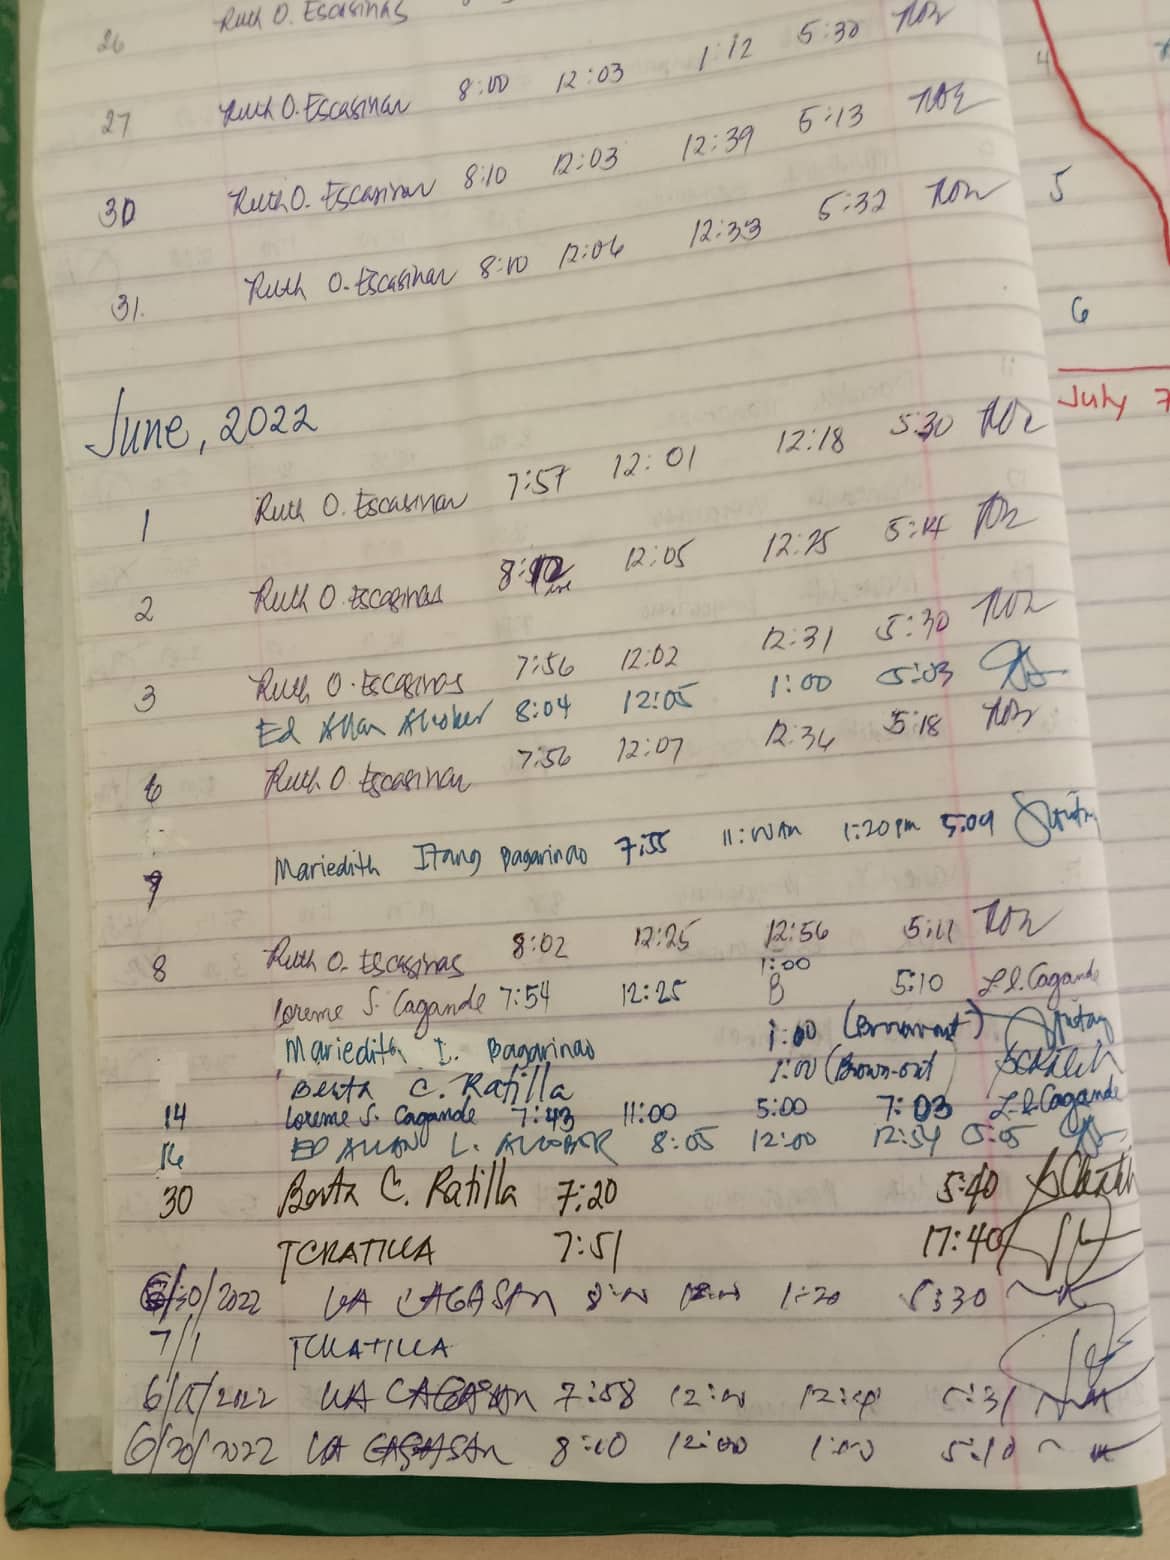 26 Ruth O. Escasinas
27 Ruth O. Escasinas 8:00 12:03 1:12 5:30
30 Ruth O. Escasinas 8:10 12:03 12:39 5:13
31. Ruth O. Escasinas 8:10 12:06 12:33 5:32
June, 2022
1 Ruth O. Escasinas 7:57 12:01 12:18 5:30
2 Ruth O. Escasinas 12:05 12:25 5:14
3 Ruth O. Escasinas 7:56 12:02 12:31 5:30
Ed Allan Alcober 8:04 12:05 1:00 5:03
6 Ruth O. Escasinas 7:56 12:07 12:36 5:18
7 Mariedith Itang Bagarinao 7:55 11:00 AM 1:20 pm 5:09
8 Ruth O. Escasinas 8:02 12:25 12:56 5:11
Loreme S. Cagande 7:54 12:25 1:00 5:10 L.S. Cagande
Mariedith I. Bagarinao 1:00 (Brown-out)
Berta C. Ratilla 1:00 (Brown-out
14 Loreme S. Cagande 7:43 11:00 5:00 7:03 L.S. Cagande
16 ED ALLAN L. ALCOBER 8:05 12:00 12:54 5:05
30 Berta C. Ratilla 7:20 5:40
TCRATILLA 7:51 17:40
6/30/2022 CAGASAN 1:20 5:30
7/1 TCRATILLA
2022 CAGASAN 7:58 5:31
6/20/2022 CAGASAN 8:10 12:00 1:00 5:10
4
5
6
July 7